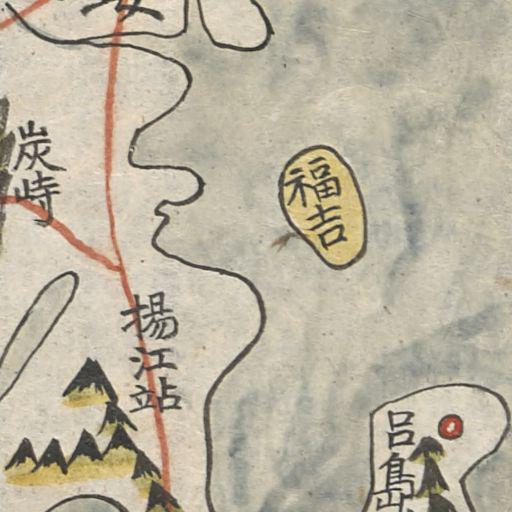 炭峙
福吉
揚江站
呂島